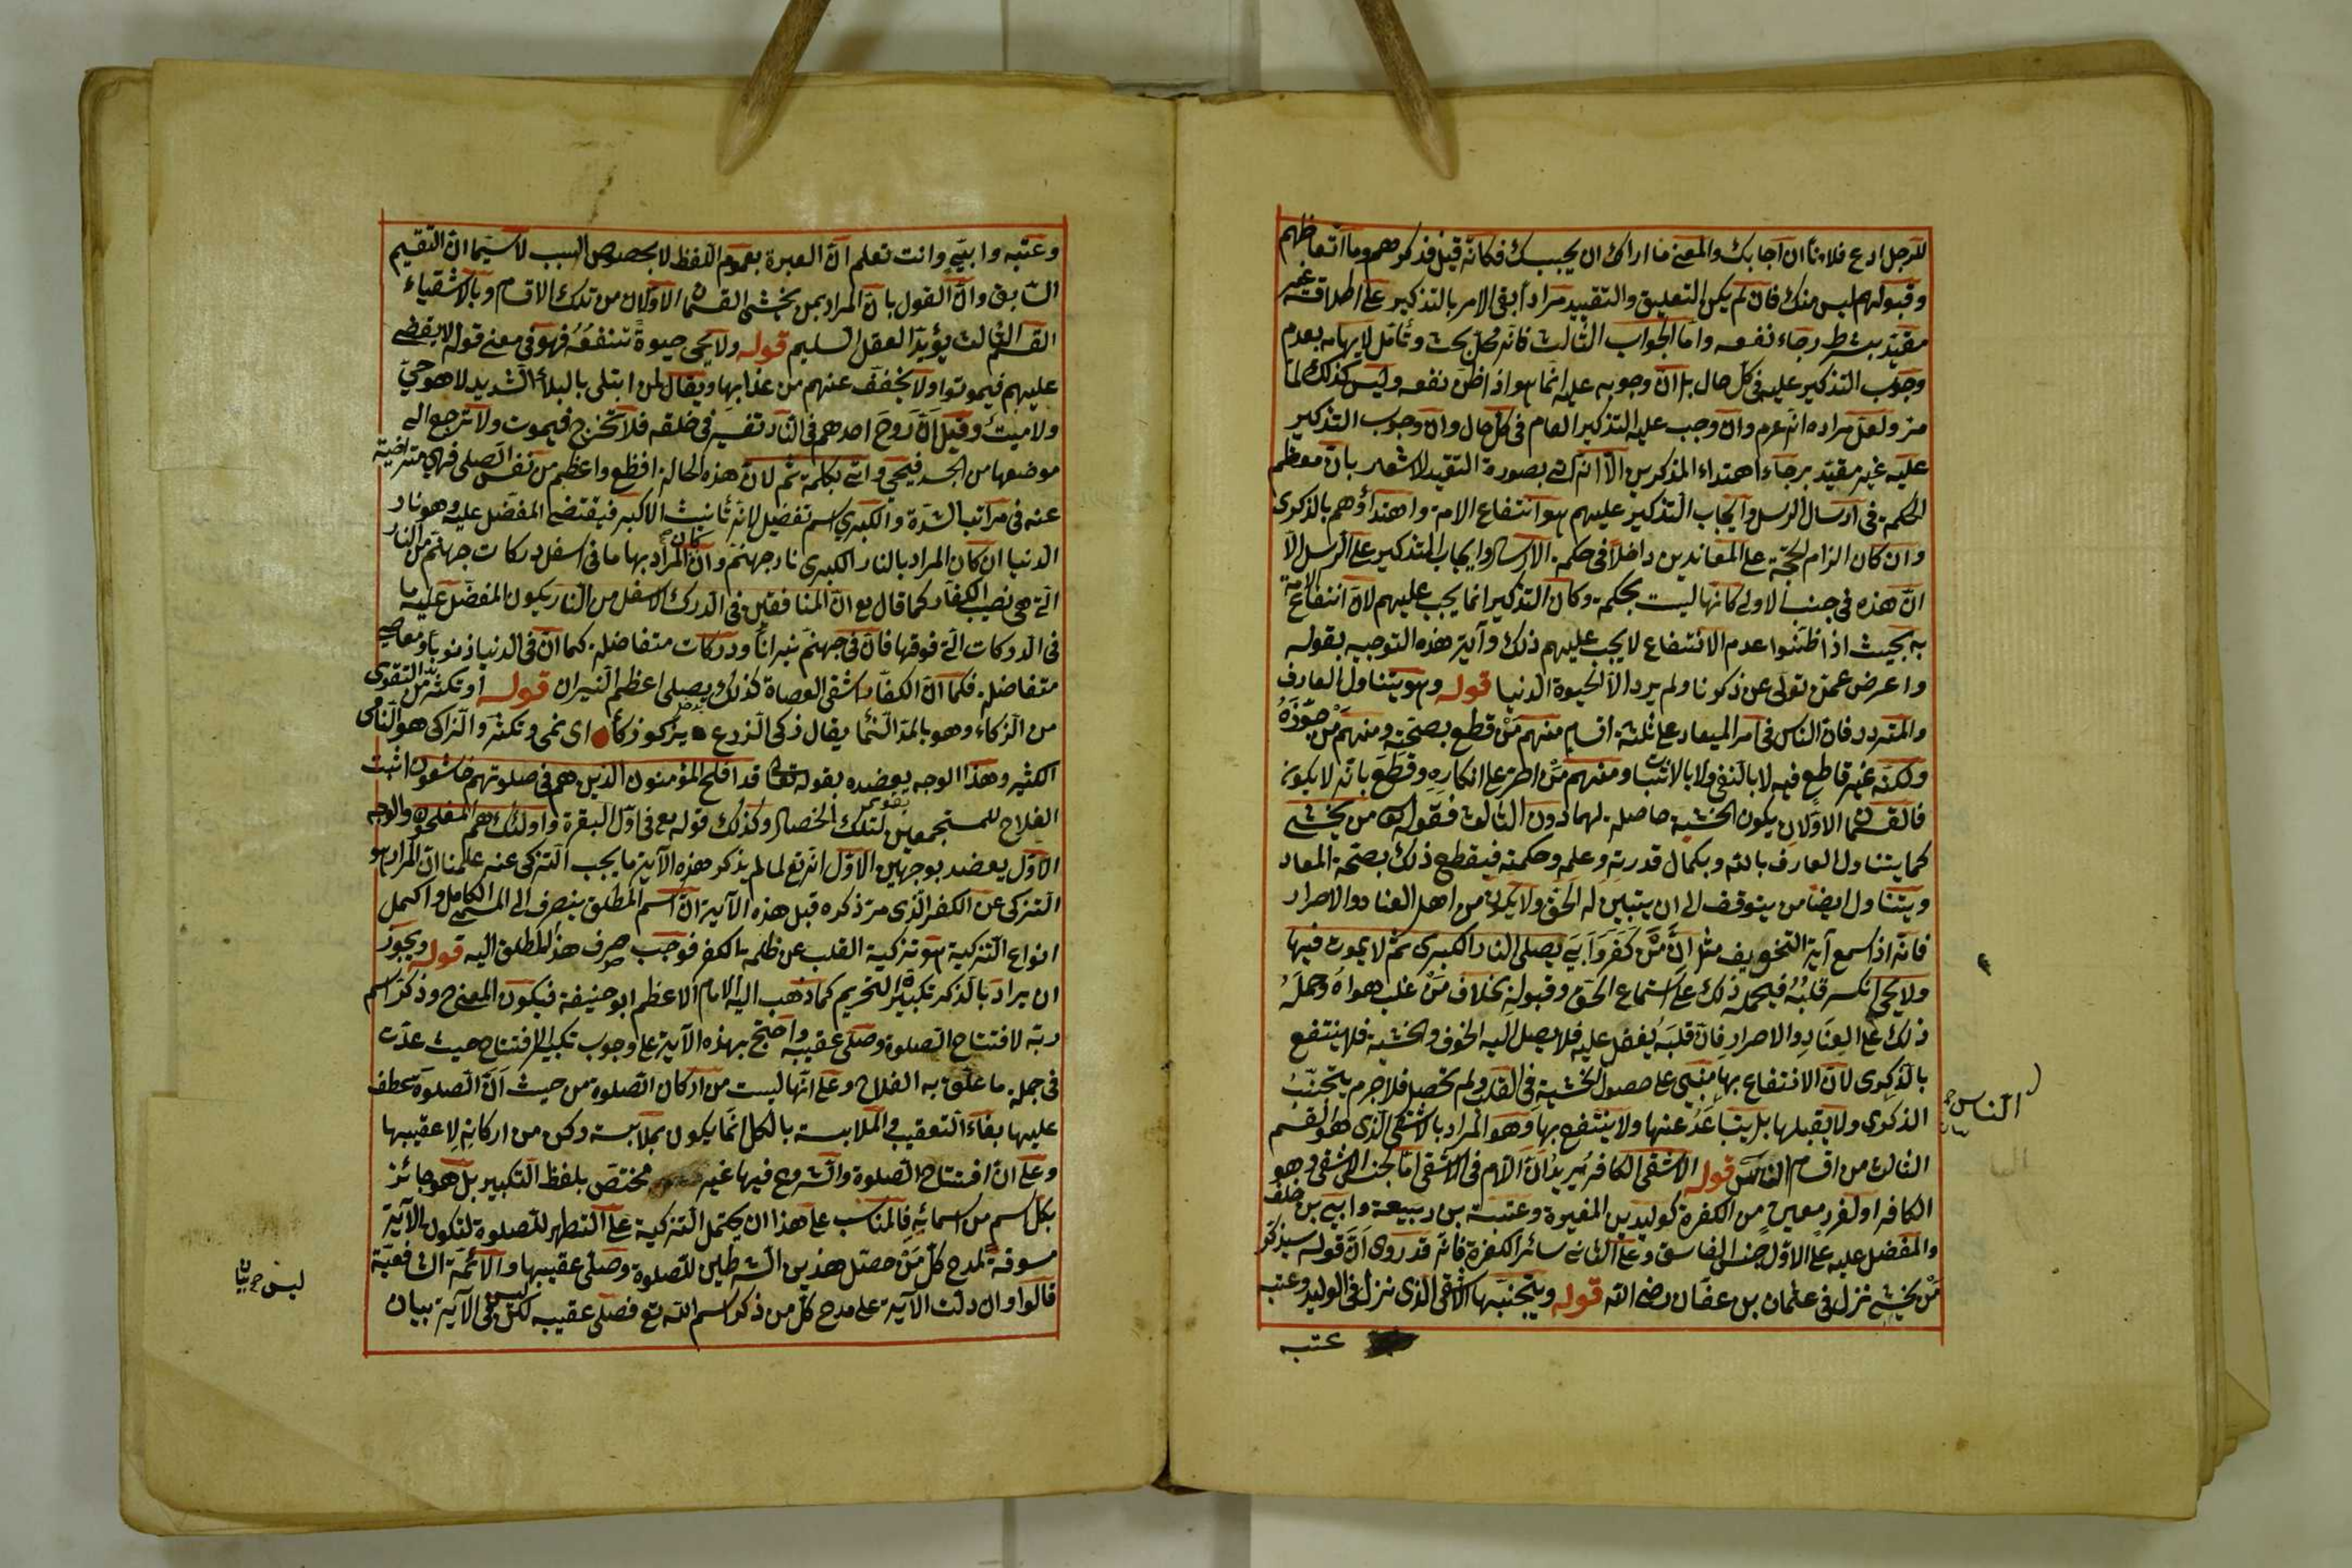 للرجل ادع فلانا ان اجابك والمعنى ما اراك ان يجيبك فكانه قيل فذكرهم وما اتعاظهم
وقبولهم ليس منك فان لم يكن التعليق والتقييد مرادا بقى الامر بالتذكير على اطلاقه غير
مقيد بشرط رجاء نفعه واما الجواب الثالث فانه محل بحث وتأمل لايهامه بعدم
وجوب التذكير عليه فى كل حال بل ان وجوبه عليه انما هو اذا ظن نفعه وليس كذلك لما
مر ولعل مراده انه عم وان وجب عليه التذكير العام فى كل حال وان وجوب التذكير
عليه غير مقيد برجاء اهتداء المذكرين الا انه اتى بصورة التقييد للاشعار بان معظم
الحكمة فى ارسال الرسل وايجاب التذكير عليهم هو انتفاع الامة واهتداؤهم بالذكرى
وان كان الزام الحجة على المعاندين داخلا فى حكمة الارسال وايجاب التذكير على الرسل الا
ان هذه فى جنب الاولى كانها ليست بحكمة وكان التذكير انما يجب عليهم لان انتفاع الامة
به بحيث اذا ظنوا عدم الانتفاع لا يجب عليهم ذلك وآية هذه التوجيه بقوله
واعرض عمن تولى عن ذكرنا ولم يرد الا الحيوة الدنيا قوله وهو يتناول العارف
والمتردد فان الناس فى امر الميعاد على ثلثة اقسام منهم من قطع بصحته ومنهم من جوزه
ولكنه غير قاطع فيه لا بالنفى ولا بالاثبات ومنهم من اصر على انكاره وقطع بانه لا يكون
فالقسمان الاولان يكون الخشية حاصلة لهما دون الثالث فقوله من يخشى
كما يتناول العارف بالله وبكمال قدرته وعلمه وحكمته فيقطع ذلك بصحة المعاد
ويتناول ايضا من يتوقف الى ان يتبين له الحق ولا يكون من اهل العناد والاصرار
فانه اذا سمع آية التخويف مثل ان من كفر وابى يصلى النار الكبرى ثم لا يموت فيها
ولا يحيى انكسر قلبه فيحمله ذلك على استماع الحق وقبوله بخلاف من غلب هواه وحمله
ذلك على العناد والاصرار فان قلبه يغفل عليه فلا يصل اليه الخوف والخشية فلا ينتفع
بالذكرى لان الانتفاع بها مبنى على حصول الخشية فى القلب ولم تحصل فلا جرم يتجنب
الذكرى ولا يقبلها بل يتباعد عنها ولا ينتفع بها وهو المراد بالاشقى الذى هو القسم
الثالث من اقسام الناس قوله الاشقى الكافر يريد ان اللام فى الاشقى اما لجنس الاشقى وهو
الكافر او لفرد معين من الكفرة كوليد بن المغيرة وعتبة بن ربيعة وابى بن خلف
والمفضل عليه على الاول جنس الفاسق وعلى الثانى سائر الكفرة فانه قد روى ان قوله سيذكر
من يخشى نزل فى عثمان بن عفان رضى الله قوله ويتجنبها الاشقى الذى نزل فى الوليد وعتبه
عتبه
الناس
وعتبه وابى وانت تعلم ان العبرة بعموم اللفظ لا بخصوص السبب لا سيما ان التقيم
السابق وان القول بان المراد بمن يخشى القسمان الاولان من تلك الاقسام وبالاشقياء
القسم الثالث يؤيد العقل السليم قوله ولا يحيى حيوة تنفعه فهو فى معنى قوله لا يقضى
عليهم فيموتوا ولا يخفف عنهم من عذابها ويقال لمن ابتلى بالبلاء الشديد لا هو حى
ولا ميت وقيل ان روح احدهم فى النار تفسير فى حلقه فلا تخرج فيموت ولا ترجع الى
موضعها من الجسد فيحيى واتى بكلمة ثم لان هذه الحالة افظع واعظم من نفس الصلى فهى متراخية
عنه فى مراتب الشدة والكبرى اسم تفضيل لانه تأنيث الاكبر فيقتضى المفضل عليه وهو نار
الدنيا ان كان المراد بالنار الكبرى نار جهنم وان كان المراد بها ما فى اسفل دركات جهنم من النار
التى هى نصيب الكفار كما قال تع ان المنافقين فى الدرك الاسفل من النار يكون المفضل عليه ما
فى الدركات التى فوقها فان فى جهنم نيرانا ودركات متفاضلة كما ان فى الدنيا ذنوبا ومعاصى
متفاضلة فكما ان الكفار اشقى العصاة كذلك يصلى اعظم النيران قوله او تكثر من التقوى
من الزكاء وهو بالمد النماء يقال زكى الزرع يزكو زكاء اى نمى وتكثر والزاكى هو النامى
الكثير وهذا الوجه يعضده بقوله تعالى قد افلح المؤمنون الذين هم فى صلوتهم خاشعون اثبت
الفلاح للمستجمعين لتلك الخصال وكذلك قوله تع فى اول البقرة واولئك هم المفلحون والوجه
الاول يعضد بوجهين الاول انه تع لما لم يذكر هذه الآية ما يجب التزكى عنه علمنا ان المراد هو
التزكى عن الكفر الذى مر ذكره قبل هذه الآية ان اسم المطلق ينصرف الى المسمى الكامل واكمل
انواع التزكية هو تزكية القلب عن ظلمة الكفر فوجب صرف هذا المطلق اليه قوله ويجوز
ان يراد بالذكر تكبيرة التحريم كما ذهب اليه الامام الاعظم ابو حنيفة فيكون المعنى وذكر اسم
ربه لافتتاح الصلوة وصلى عقيبه واحتج بهذه الآية على وجوب تكبير الافتتاح حيث عدت
فى جملة ما علق به الفلاح وعلى انها ليست من اركان الصلوة من حيث ان الصلوة عطف
عليها بفاء التعقيب والملابسة بالكل انما يكون بملابسة ركن من اركانه لا عقيبها
وعلى ان افتتاح الصلوة والشروع فيها غير مختص بلفظ التكبير بل هو جائز
بكل اسم من اسمائه فالمناسب على هذا ان يحتمل التزكية على التطهر للصلوة لتكون الآية
مسوقة لمدح كل من حصل هذين الشرطين للصلوة وصلى عقيبها والائمة الشافعية
قالوا وان دلت الآية على مدح كل من ذكر اسم الله تع فصلى عقيبه لكن ليس فى الآية بيان